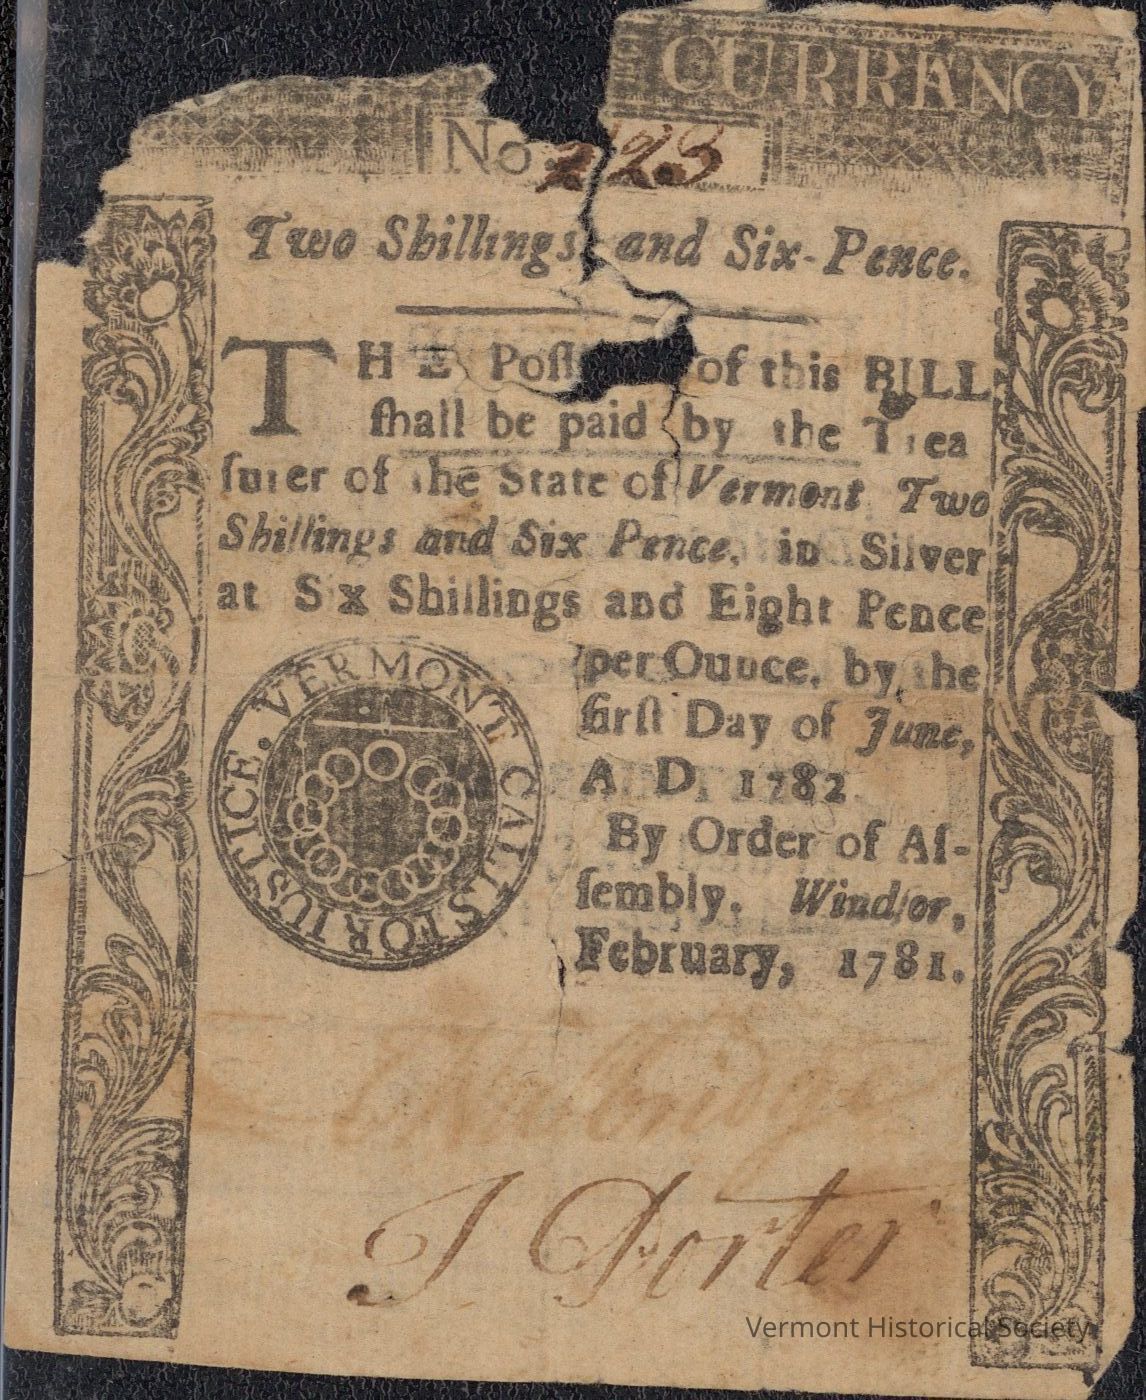 CURRANCY
No 223
Two Shillings and Six-Pence.
THE Poſſ of this BILL
ſhall be paid by the Trea
ſurer of the State of Vermont Two
Shillings and Six Pence, in Silver
at Six Shillings and Eight Pence
per Ounce, by the
firſt Day of June,
A D, 1782
By Order of Aſ-
ſembly. Windſor,
February, 1781.
VERMONT CALLS FOR IUSTICE.
J Porter
Vermont Historical Society